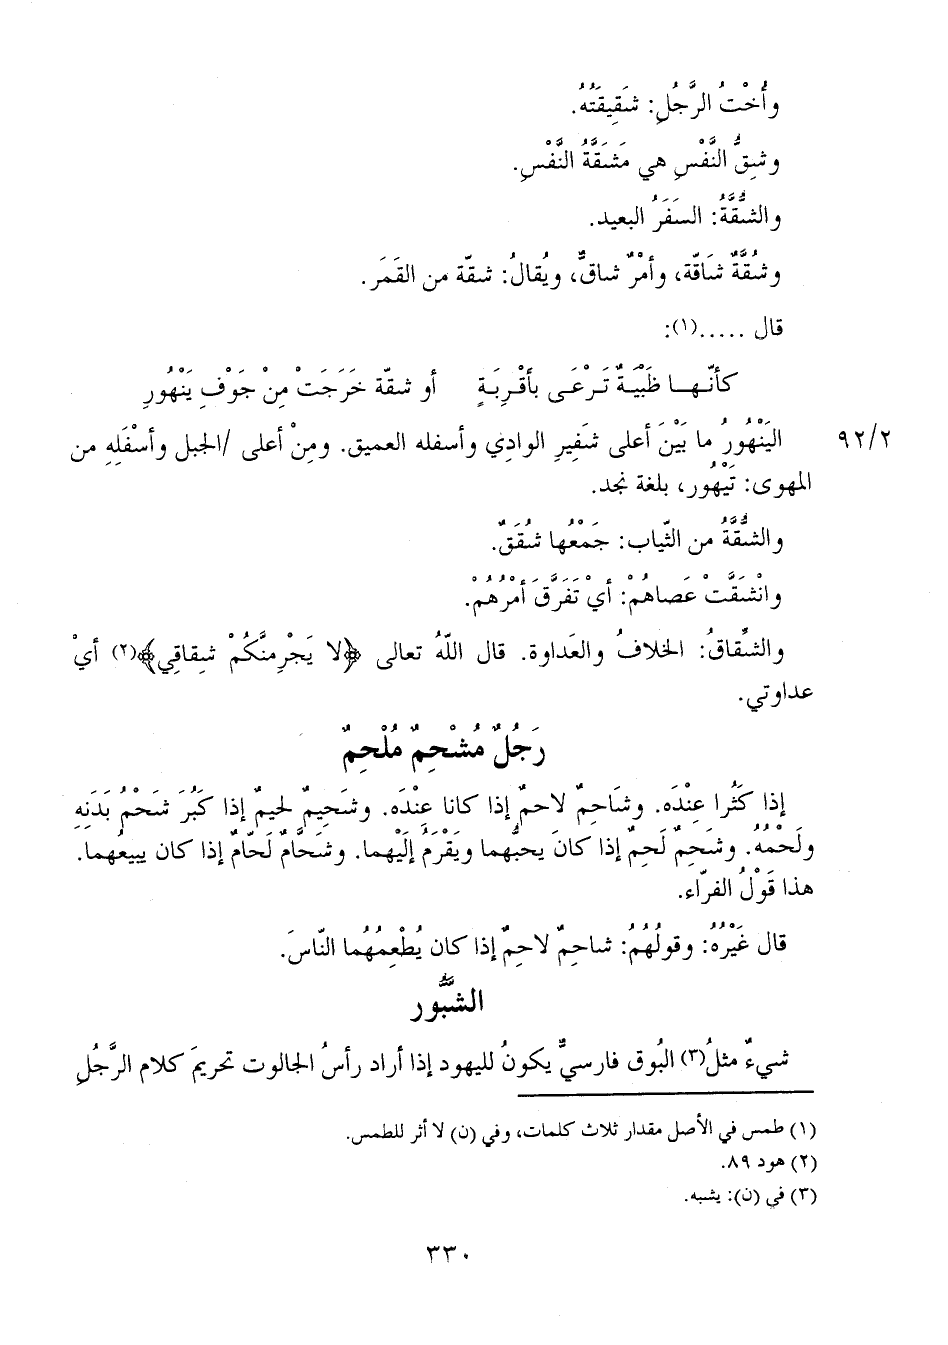 وأُخْتُ الرَّجُلِ: شَقِيقَتُهُ.
وشِقُّ النَّفْسِ هي مَشَقَّةُ النَّفْسِ.
والشُّقَّةُ: السَفَرُ البعيد.
وشُقَّةٌ شَاقّة، وأمْرٌ شاقٌّ، ويُقالُ: شقّة من القَمَر.
قال .....(١):
كأنّـهـا ظَبْيَـةٌ تَـرْعَـى بأقْـرِبَـةٍ أو شقّة خَرَجَتْ مِنْ جَوْفِ يَنْهُورِ
٩٢/٢ اليَنْهُورُ ما بَيْنَ أعلى شَفِيرِ الوادِي وأسفله العميق. ومِنْ أعلى /الجبل وأسْفَلِهِ من
المهوى: تَيْهُور، بلغة نجد.
والشُّقَّةُ من الثّياب: جَمْعُها شُقَقٌ.
وانْشَقَّتْ عَصاهُمْ: أيْ تَفَرَّقَ أمْرُهُمْ.
والشِّقاقُ: الخلافُ والعَداوة. قال اللّهُ تعالى ﴿لا يَجْرِمنَّكُمْ شِقاقِي﴾(٢) أيْ
عداوتي.
رَجُلٌ مُشْحِمٌ مُلْحِمٌ
إذا كَثُرا عِنْدَه. وشَاحِمٌ لاحمٌ إذا كانا عِنْدَه. وشَحِيمٌ لحيمٌ إذا كَبُرَ شَحْمُ بَدَنِهِ
ولَحْمُهُ. وشَحِمٌ لَحِمٌ إذا كانَ يحبُّهما ويَقْرَمُ إلَيْهما. وشَحَّامٌ لَحّامٌ إذا كان يبيعُهما.
هذا قَوْلُ الفرّاء.
قال غَيْرُهُ: وقولُهُمُ: شاحِمٌ لاحِمٌ إذا كان يُطْعِمُهُما النّاسَ.
الشَّبُّور
شيءٌ مثلُ(٣) البُوق فارسيٌّ يكونُ لليهود إذا أراد رأسُ الجالوت تحريمَ كلام الرَّجُلِ
(١) طمس في الأصل مقدار ثلاث كلمات، وفي (ن) لا أثر للطمس.
(٢) هود ٨٩.
(٣) في (ن): يشبه.
٣٣٠